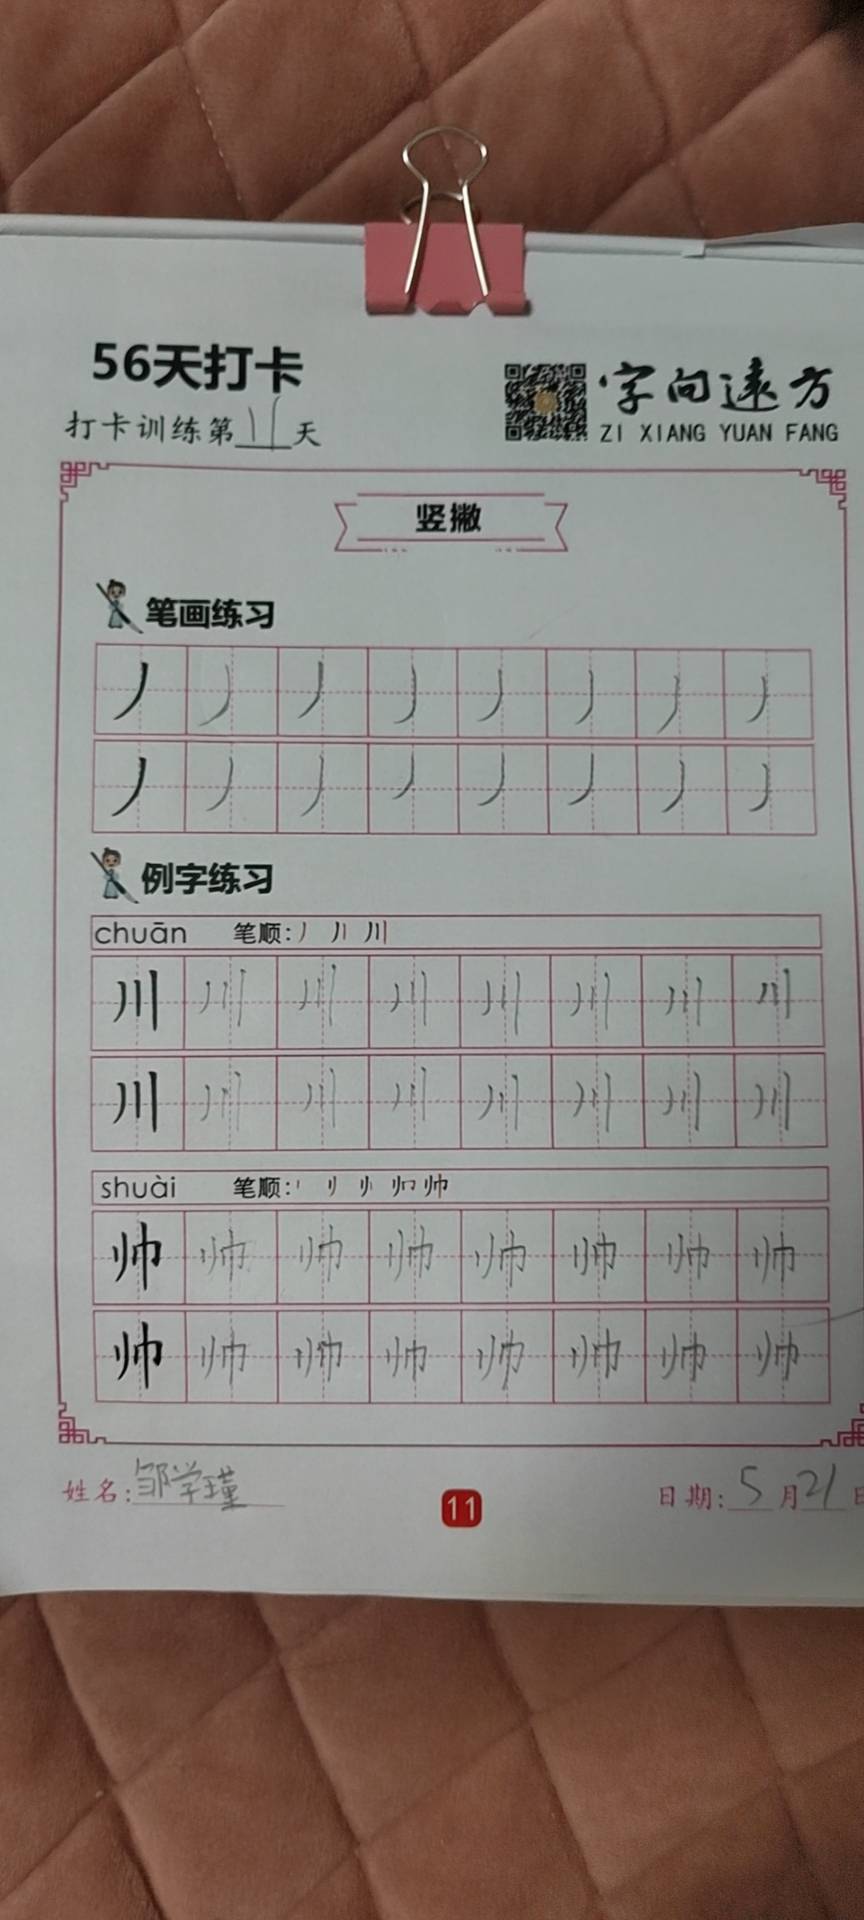 56天打卡
打卡训练第11天
字向远方
ZI XIANG YUAN FANG
竖撇
笔画练习
丿 丿 丿 丿 丿 丿 丿 丿
丿 丿 丿 丿 丿 丿 丿 丿
例字练习
chuān 笔顺: 丿 丿丨 川
川 川 川 川 川 川 川 川
川 川 川 川 川 川 川 川
shuài 笔顺:
帅 帅 帅 帅 帅 帅 帅 帅
帅 帅 帅 帅 帅 帅 帅 帅
姓名: 邹学瑾
11
日期: 5月21日